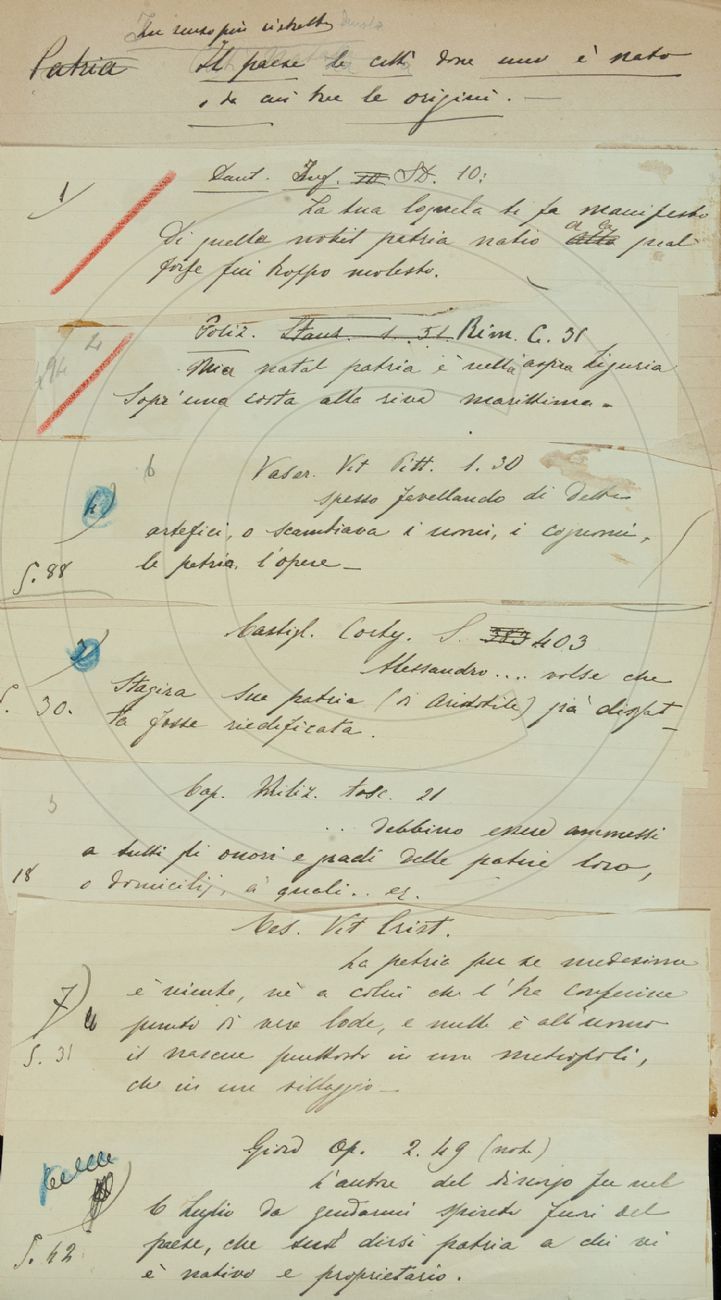 In senso più ristretto
Patria Il paese la città dove uno è nato
o da cui trae le origini. —
1 Dant. Inf. 10:
La tua loquela ti fa manifesto
Di quella nobil patria natio
A la qual
forse fui troppo molesto.
4 Poliz. Stanz. 1. 51 Rim. C. 31
Mia natal patria è nella aspra Liguria
Sopr'una costa alla riva marittima.
6 Vasar. Vit Pitt. 1. 30
spesso favellando di detti
artefici, o scambiava i nomi, i cognomi,
la patria, l'opere —
S. 88
Castigl. Corteg. S. 383 403
Alessandro.... volse che
Stagira sua patria (di Aristotile) già disfat-
S. 30. ta fosse riedificata.
5 Cap. Miliz. tosc. 21
... debbino essere ammessi
a tutti gli onori e gradi delle patrie loro,
18 o domicilij, a' quali.. ec.
Ces. Vit Crist.
La patria per se medesima
7 è niente, nè a colui che l'ha conferisce
4 punto di vera lode, e nulla è all'uomo
S. 31 il nascere piuttosto in una metropoli,
che in un villaggio —
Giord Op. 2. 49 (not.)
L'autore del discorso fu nel
6 Luglio da gendarmi spinto fuori del
S. 42 paese, che suol dirsi patria a chi vi
è nativo e proprietario.